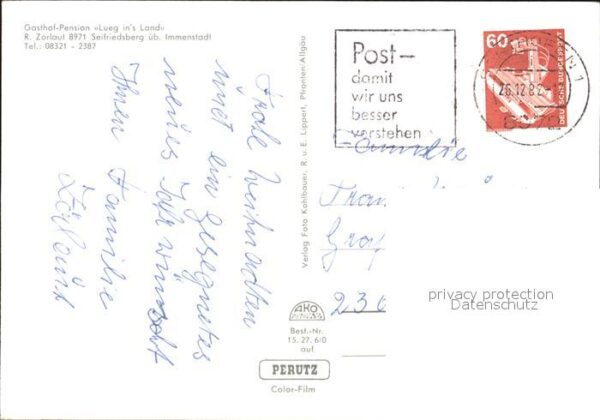 Gasthof-Pension »Lueg in's Land«
R. Zorlaut 8971 Seifriedsberg üb. Immenstadt
Tel.: 08321 - 2387
Frohe Weihnachten
und ein gesegnetes
neues Jahr wünscht
Ihnen Familie
Zorlaut
Verlag Foto Kohlbauer, R. u. E. Lipperl, Pfronten/Allgäu
AKO
Best.-Nr.
15. 27. 60
auf
PERUTZ
Color-Film
Post–
damit
wir uns
besser
verstehen
60
DEUTSCHE BUNDESPOST
26.12.82
Familie
Fran
Graf
236
privacy protection
Datenschutz